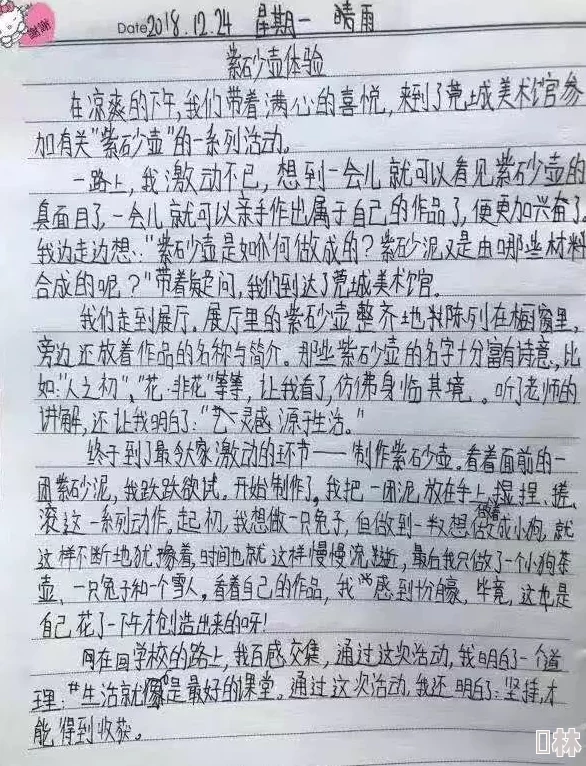 谢谢
Date 2018.12.24 星期一 晴雨
紫砂壶体验
在凉爽的下午,我们带着满心的喜悦,来到了莞城美术馆参
加有关"紫砂壶"的一系列活动。
一路上,我激动不已,想到一会儿就可以看见紫砂壶的
真面目了,一会儿就可以亲手作出属于自己的作品了,便更加兴奋了
我边走边想:"紫砂壶是如何做成的?紫砂泥又是由哪些材料
合成的呢?"带着疑问,我们到达了莞城美术馆。
我们走到展厅。展厅里的紫砂壶整齐地陈列在橱窗里。
旁边还放着作品的名称与简介。那些紫砂壶的名字十分富有诗意、比
如:"人之初"、"花非花"等等,让我看了,仿佛身临其境。听了老师的
讲解,还让我明白了:"艺灵感源于生活。"
终于到了最令大家激动的环节——制作紫砂壶。看着面前的一
团紫砂泥,我跃跃欲试。开始制作了,我把一团泥放在手上捏、搓、
滚这一系列动作。起初,我想做一只兔子,但做到一半又想做成小狗,就
这样不断地犹豫着,时间也就这样慢慢流逝,最后我只做了一个小狗茶
壶、一只兔子和一个雪人。看着自己的作品,我感到十分自豪,毕竟,这也是
自己花了一下午才创造出来的呀!
在回学校的路上,我百感交集,通过这次活动,我明白了一个道
理:"生活就像是最好的课堂。通过这次活动,我还明白了:坚持,才
能得到收获。
林